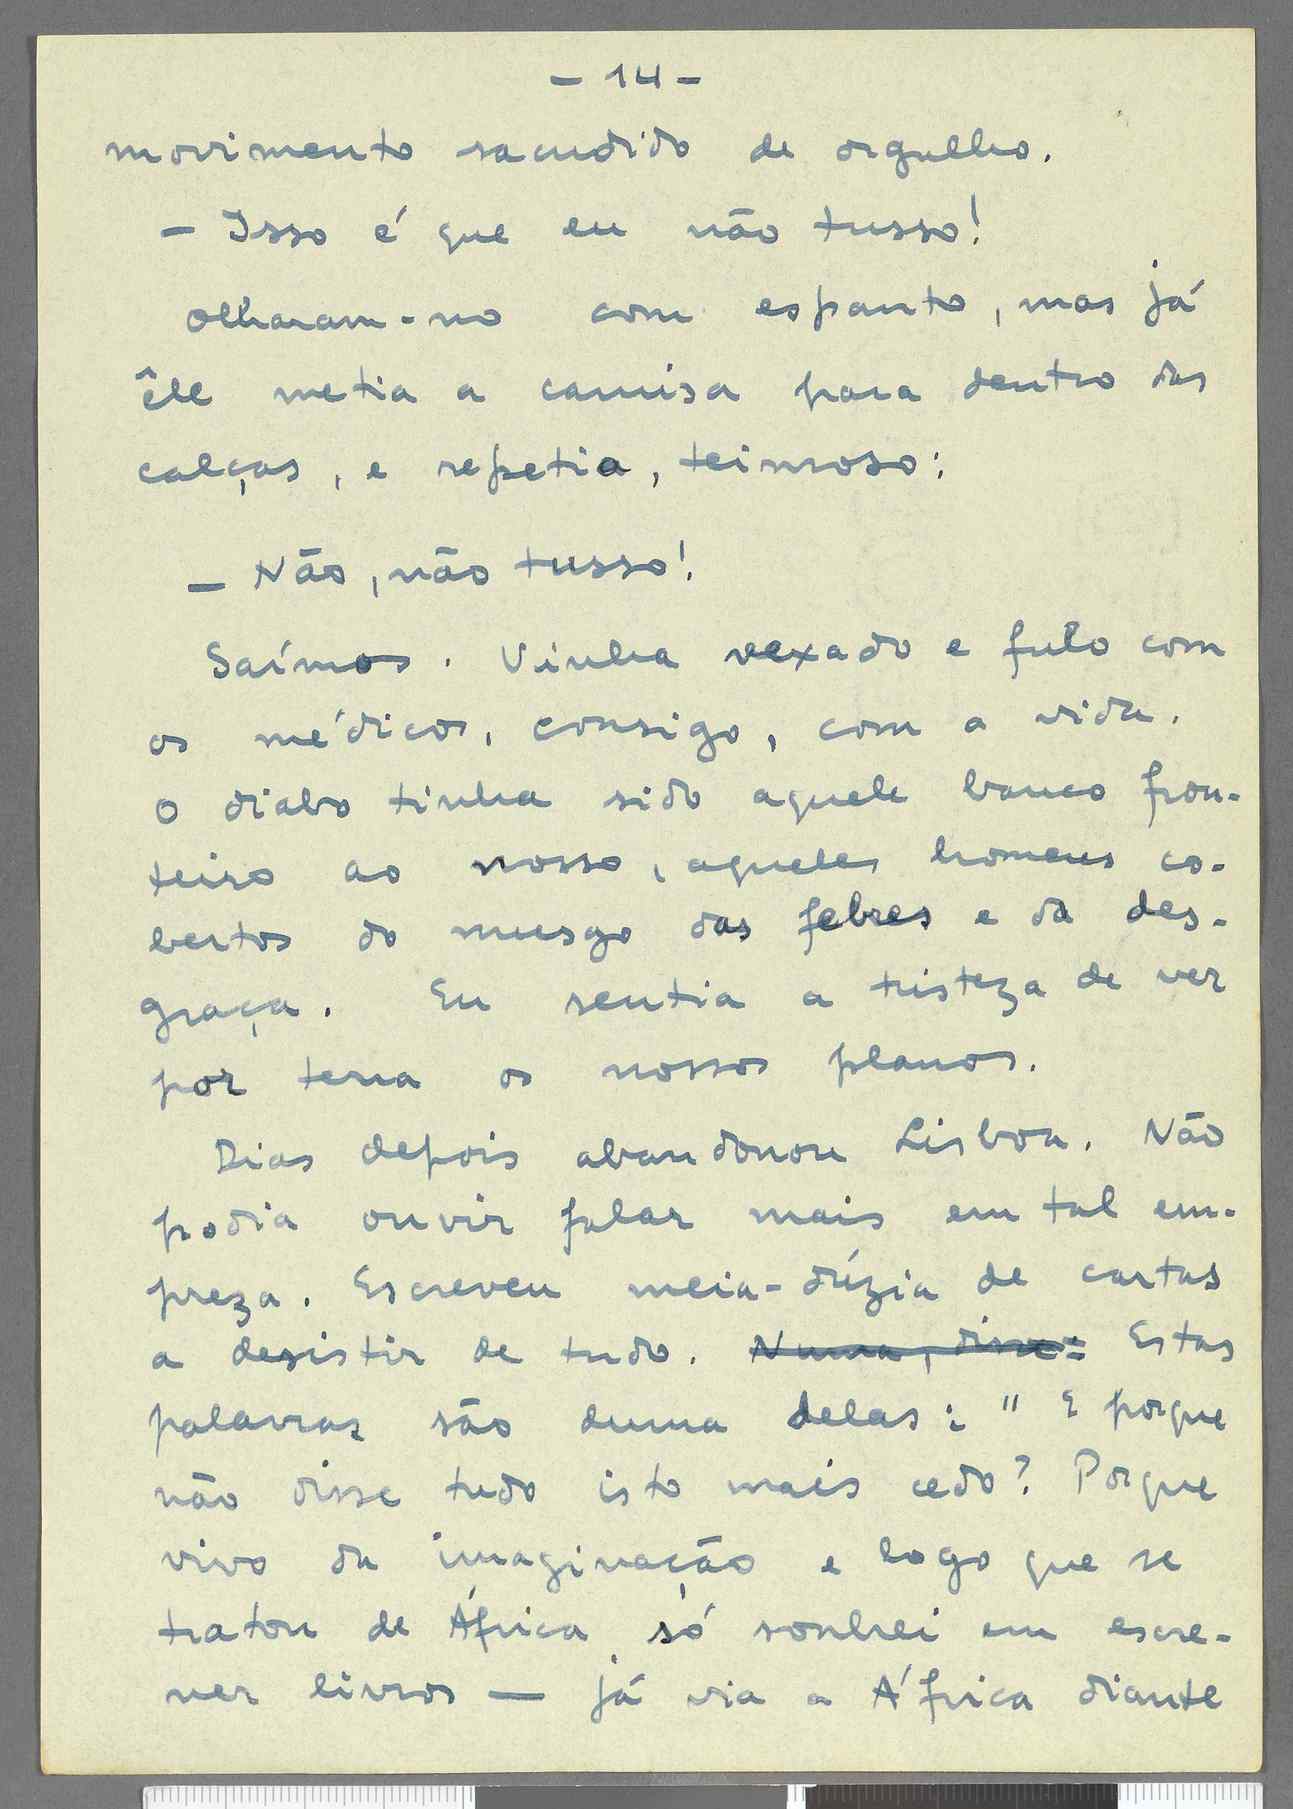 - 14 -
movimento sacudido de orgulho.
- Isso é que eu não tusso!
Olharam-no com espanto, mas já
êle metia a camisa para dentro das
calças, e repetia, teimoso:
- Não, não tusso!
Saímos. Vinha vexado e fulo com
os médicos, consigo, com a vida.
O diabo tinha sido aquele banco fron-
teiro ao nosso, aqueles homens co-
bertos do musgo das febres e da des-
graça. Eu sentia a tristeza de ver
por terra os nossos planos.
Dias depois abandonou Lisboa. Não
podia ouvir falar mais em tal em-
preza. Escreveu meia-dúzia de cartas
a desistir de tudo. Numa, disse: Estas
palavras são duma delas: " E porque
não disse tudo isto mais cedo? Porque
vivo da imaginação e logo que se
tratou de África só sonhei em escre-
ver livros — já via a África diante